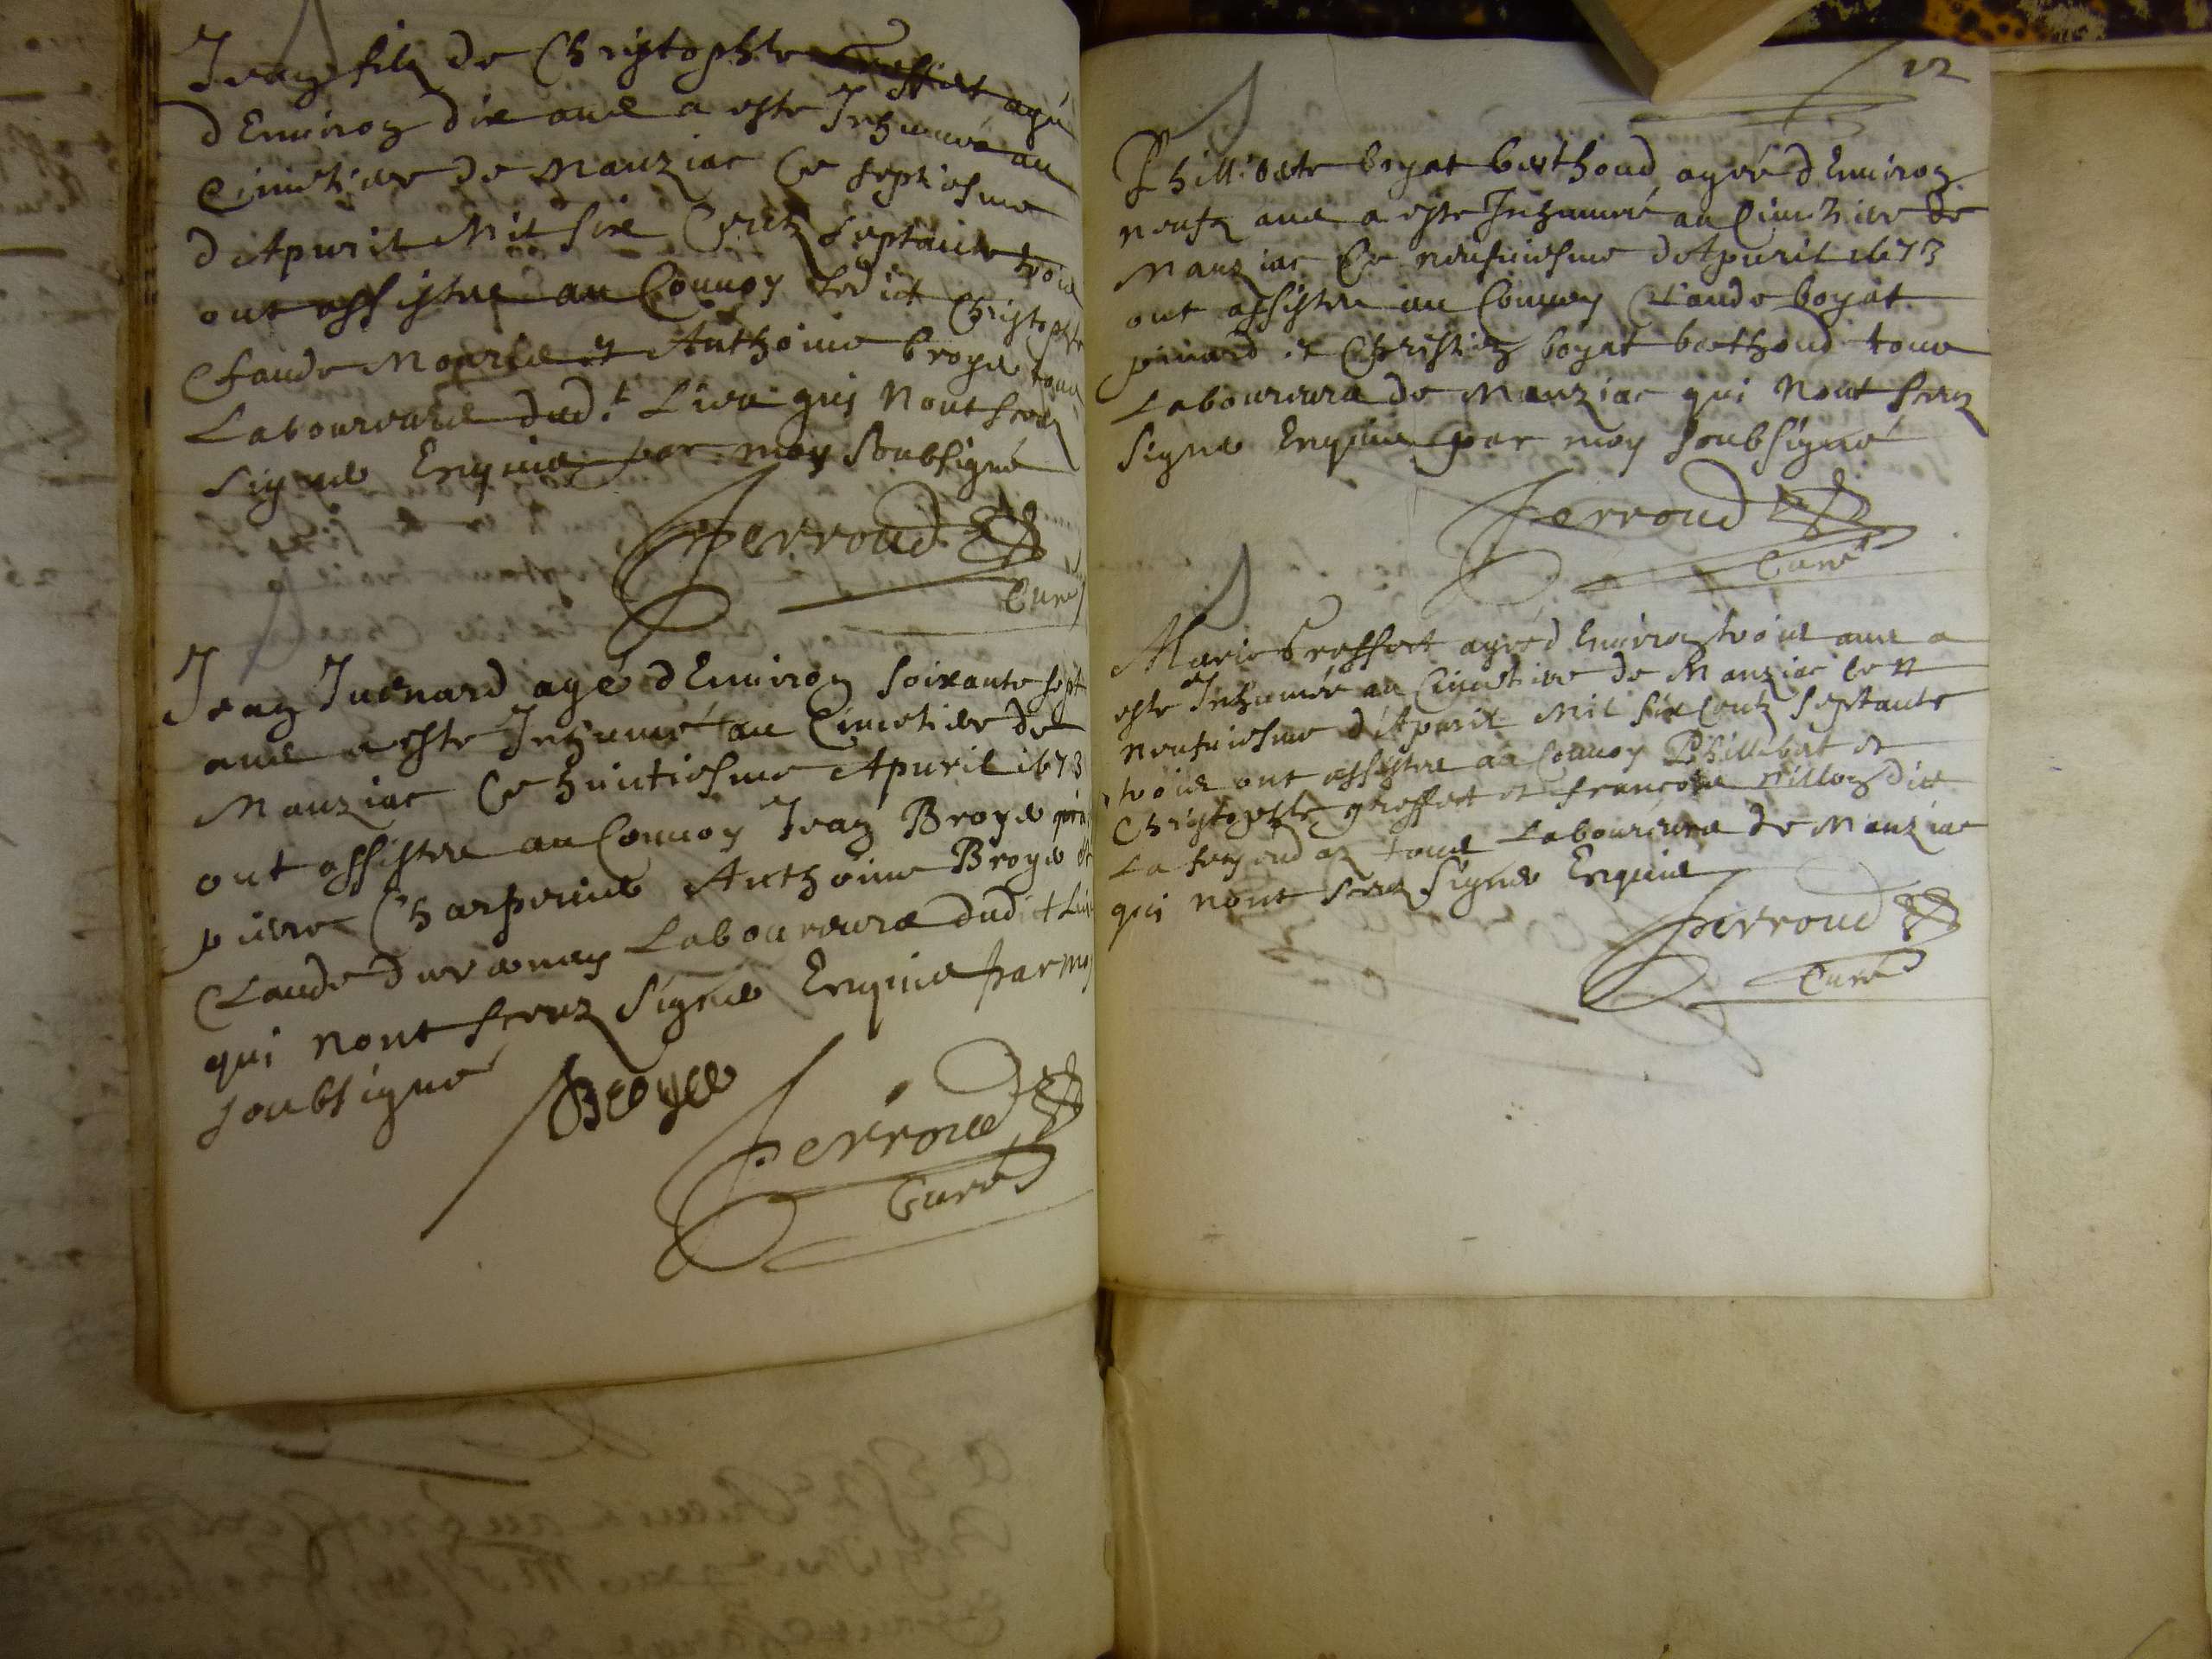 Jean filz de Christophle Greffet agé
d Environ dix ans a este Inhumé au
Cimetiere de Manziac Ce septiesme
d Apuril Mil Six Centz Septante trois
ont assistez au Conuoy Ledict Christophle
Claude et Anthoine broye tous
Laboureurs dud.t Lieu qui Nont sceuz
signes Enquis par moy Soubsigné
Perroud
Curé
Jean Juenard agé d Enuiron Soixante sept
ans a este Inhumé au Cimetiere de
Manziac Ce huictiesme Apuril 1673
ont assistez au Conuoy Jean Broye
pierre Charperine Anthoine Broye et
Claude Laboureurs dudict Lieu
qui nont sceuz Signes Enquis par moy
soubsigné
Broye
Perroud
Curé
12
Phillibte boyat berthoud agée d Enuiron
neufz ans a este Inhumé au Cimetiere de
Manziac Ce neufuiesme d Apuril 1673
ont assistez au Conuoy Claude boyat
et boyat berthoud tous
Laboureurs de Manziac qui Nont sceuz
signes Enquis par moy soubsigné
Perroud
Curé
Marie Greffet agée d Enuiron trois ans a
este Inhumée au Cimetiere de Manziac le n
neufuiesme d Apuril Mil Six Centz Septante
trois ont assistez au Conuoy Phillibert et
Christophle greffet et francois dit
La tous Laboureurs de Manziac
qui nont sceuz Signes Enquis
Perroud
Curé